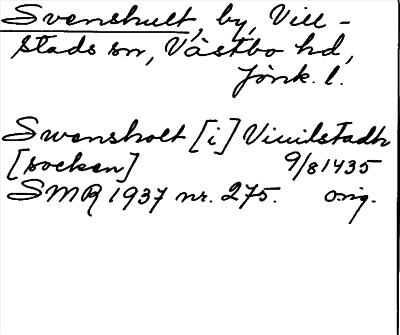 Svenshult, by, Vill-
stads sn, Västbo hd,
Jönk. l.
Swensholt [i] Viuilstadh
[socken] 9/8 1435
SMR 1937 nr. 275. orig.